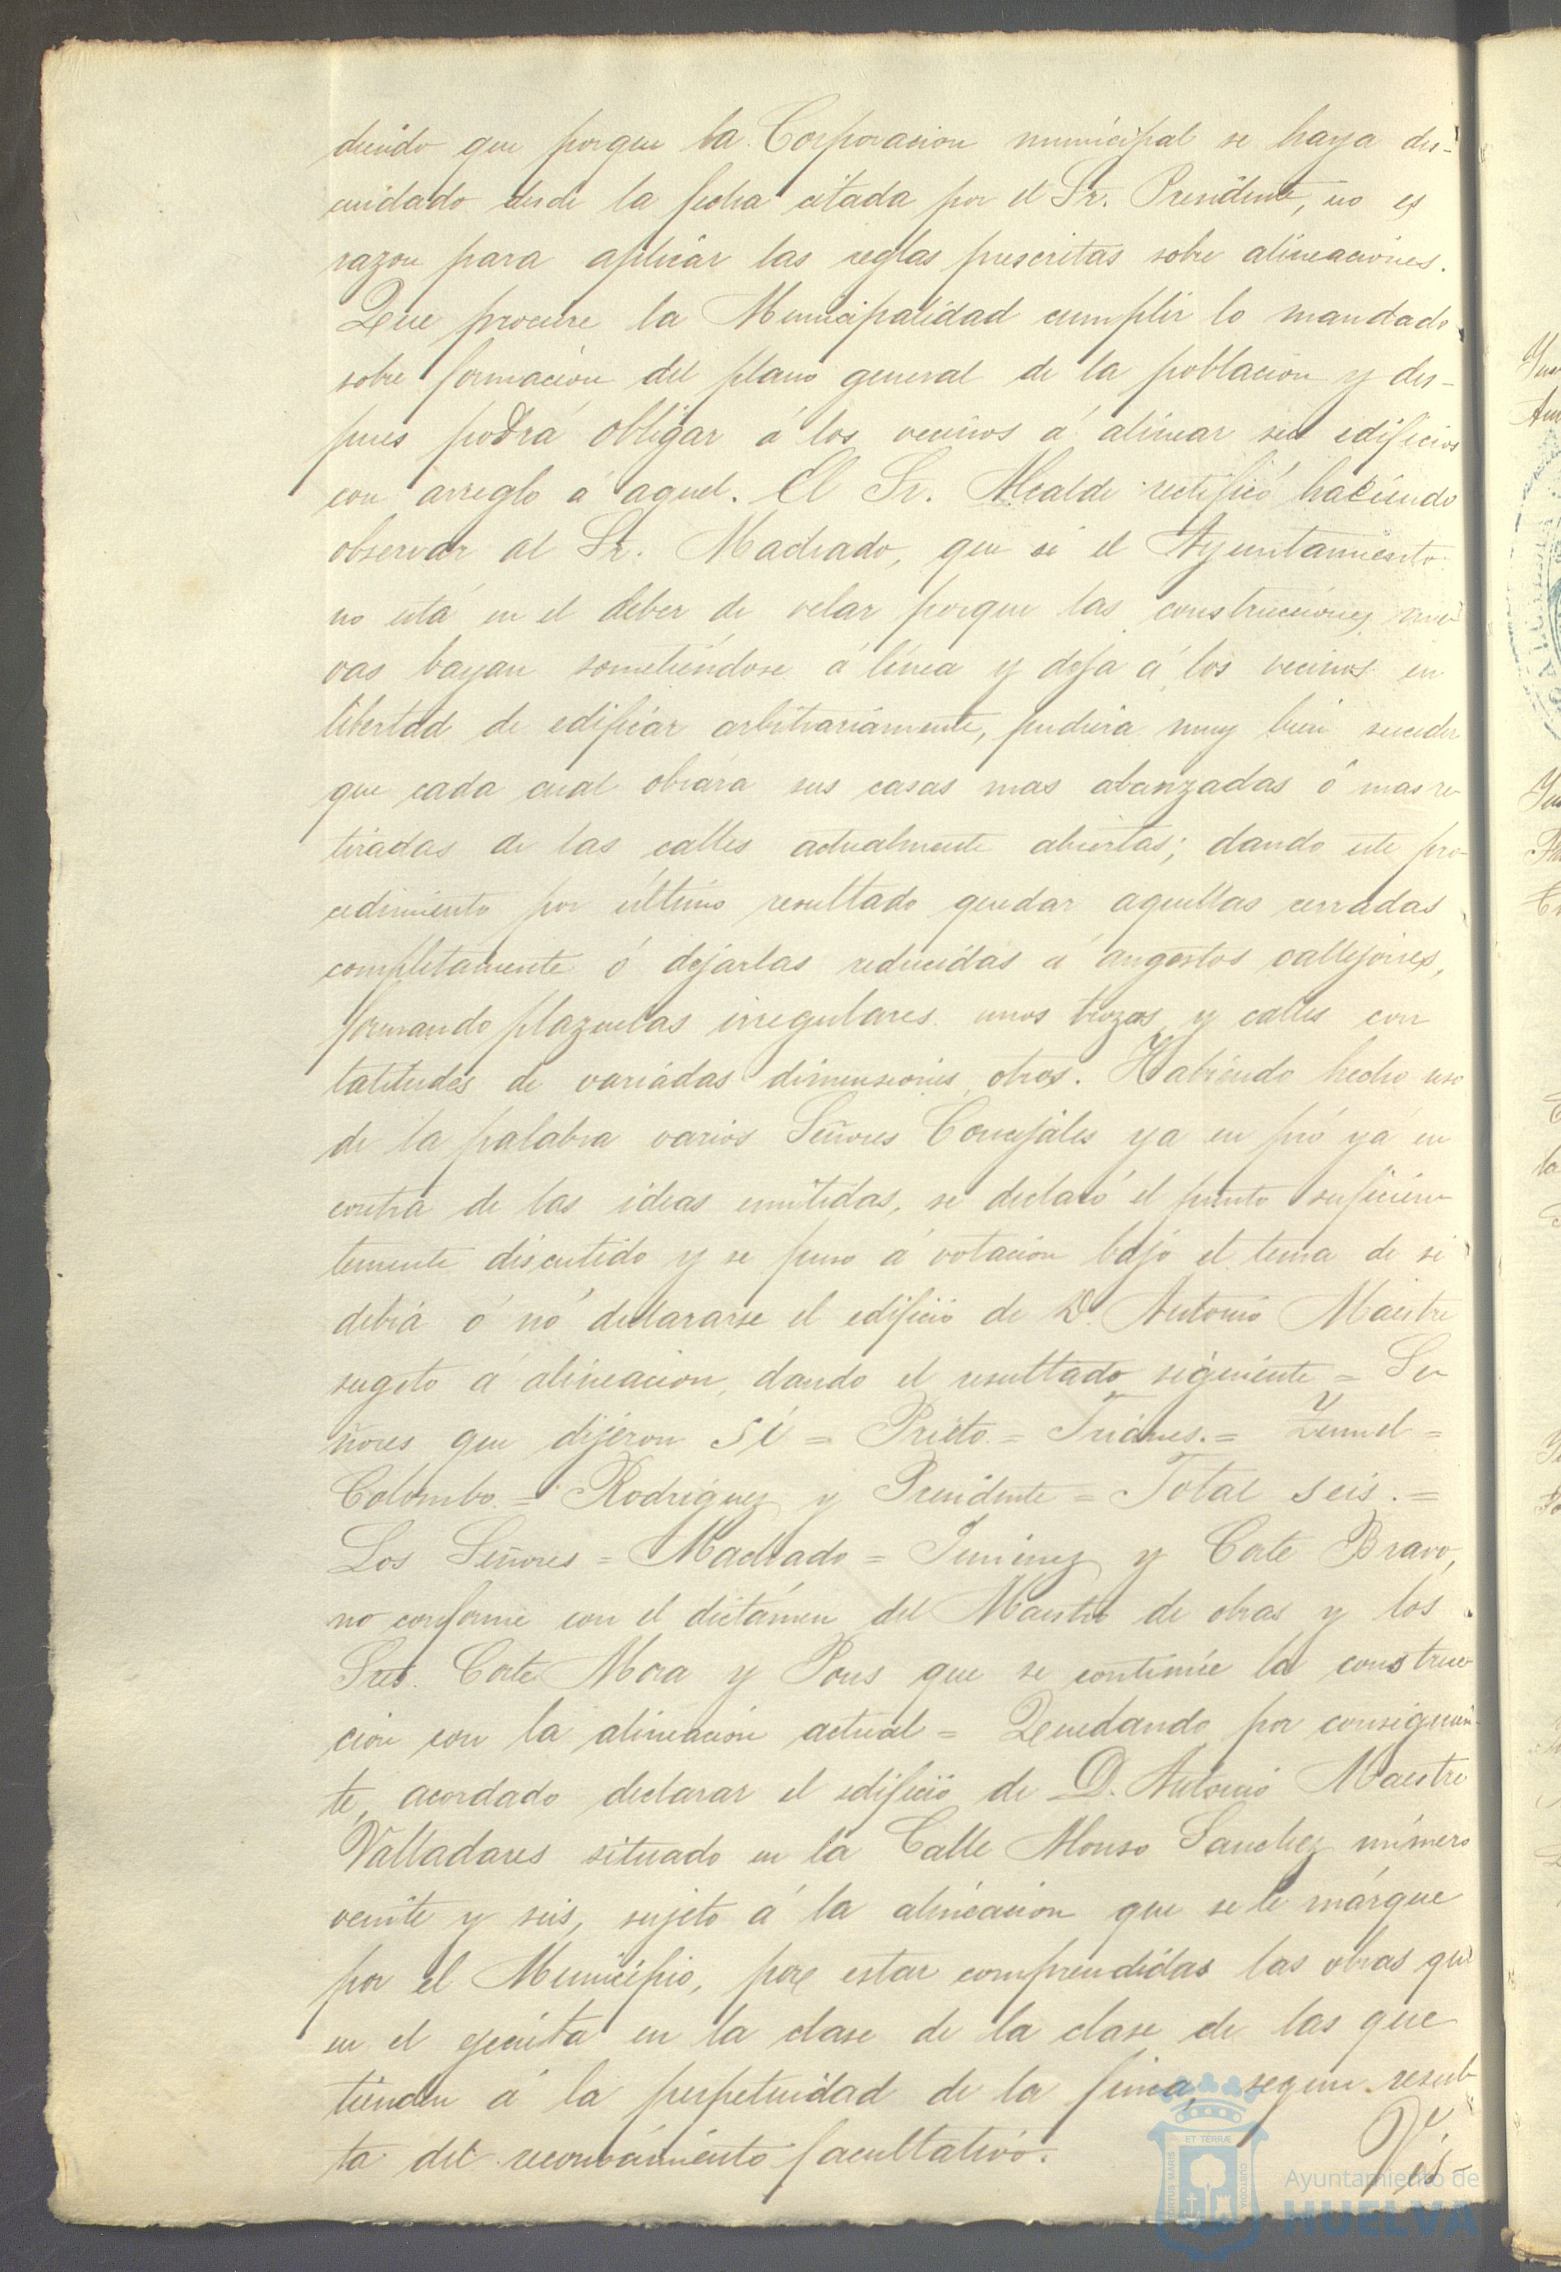 diendo que porque la Corporacion municipal se haya des-
cuidado desde la fecha citada por el Sr. Presidente, no es
razon para aplicar las reglas prescritas sobre alineaciones.
Que procure la Municipalidad cumplir lo mandado
sobre formacion del plano general de la poblacion y des-
pues podrá obligar á los vecinos á alinear sus edificios
con arreglo á aquel. El Sr. Alcalde rectificó haciendo
observar al Sr. Machado, que si el Ayuntamiento
no está en el deber de velar porque las construcciones nue-
vas bayan sometiéndose á línea y deja á los vecinos en
libertad de edificar arbitrariamente, pudiera muy bien suceder
que cada cual obrára sus casas mas abanzadas ó mas re
tiradas de las calles actualmente abiertas; dando este pro-
cedimiento por último resultado quedar aquellas cerradas
completamente ó dejarlas reducidas á angostos callejones,
formando plazuelas irregulares unos trozos y calles con
latitudes de variadas dimensiones otros. Habiendo hecho uso
de la palabra varios Señores Concejales ya en pró ya en
contra de las ideas emitidas, se declaró el punto suficien
temente discutido y se puso á votacion bajo el tema de si
debia ó nó declararse el edificio de D. Antonio Maestre
sugeto á alineacion, dando el resultado siguiente = Se
ñores que dijeron Sí = Prieto. = Trianes. = =
Colombo. = Rodriguez y Presidente = Total seis. =
Los Señores = Machado = Jimenez y Corte Bravo,
no conforme con el dictámen del Maestro de obras y los
Sres. Corte Mora y Pons que se continúe la construc
cion con la alineacion actual = Quedando por consiguien-
te, acordado declarar el edificio de D. Antonio Maestre
Valladares situado en la Calle Alonso Sanchez número
veinte y seis, sujeto á la alineacion que se le márque
por el Municipio, por estar comprendidas las obras que
en el ejecuta en la clase de la clase de las que
tienden á la perpetuidad de la finca, segun resul-
ta del reconocimiento facultativo.
ET TERRÆ
PORTUS MARIS
CUSTODIA
Ayuntamiento de
HUELVA